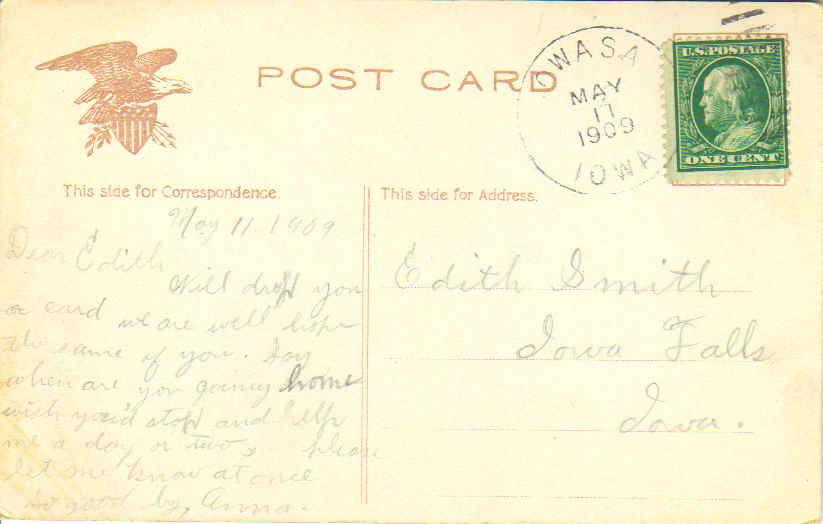 POST CARD
OWASA
MAY
11
1909
IOWA
U.S. POSTAGE
ONE CENT
This side for Correspondence.
May 11-1909
Dear Edith
Will drop you
a card we are well hope
the same of you. Say
when are you going home
wish you'd stop and help
me a day or two, please
let me know at once
so good by, Anna.
This side for Address.
Edith Smith
Iowa Falls
Iowa.